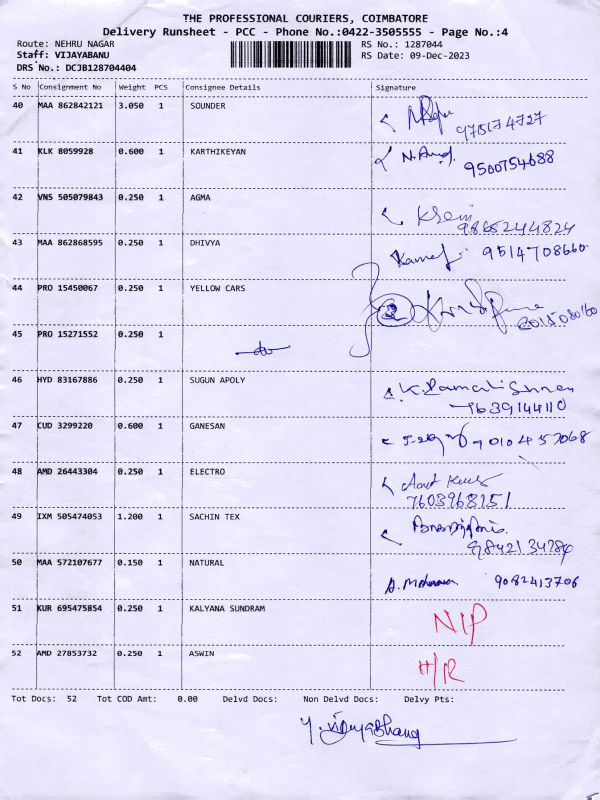 THE PROFESSIONAL COURIERS, COIMBATORE
Delivery Runsheet - PCC - Phone No.:0422-3505555 - Page No.:4
Route: NEHRU NAGAR RS No.: 1287044
Staff: VIJAYABANU RS Date: 09-Dec-2023
DRS No.: DCJB128704404
S No Consignment No Weight PCS Consignee Details Signature
40 MAA 862842121 3.050 1 SOUNDER
41 KLK 8059928 0.600 1 KARTHIKEYAN
9500754688
42 VNS 505079843 0.250 1 AGMA
9865244824
43 MAA 862868595 0.250 1 DHIVYA
9514708660
44 PRO 15450067 0.250 1 YELLOW CARS
45 PRO 15271552 0.250 1
46 HYD 83167886 0.250 1 SUGUN APOLY
7639144110
47 CUD 3299220 0.600 1 GANESAN
48 AMD 26443304 0.250 1 ELECTRO
7603968151
49 IXM 505474053 1.200 1 SACHIN TEX
50 MAA 572107677 0.150 1 NATURAL
9082413706
51 KUR 695475854 0.250 1 KALYANA SUNDRAM
NIP
52 AMD 27853732 0.250 1 ASWIN
H/R
Tot Docs: 52 Tot COD Amt: 0.00 Delvd Docs: Non Delvd Docs: Delvy Pts: